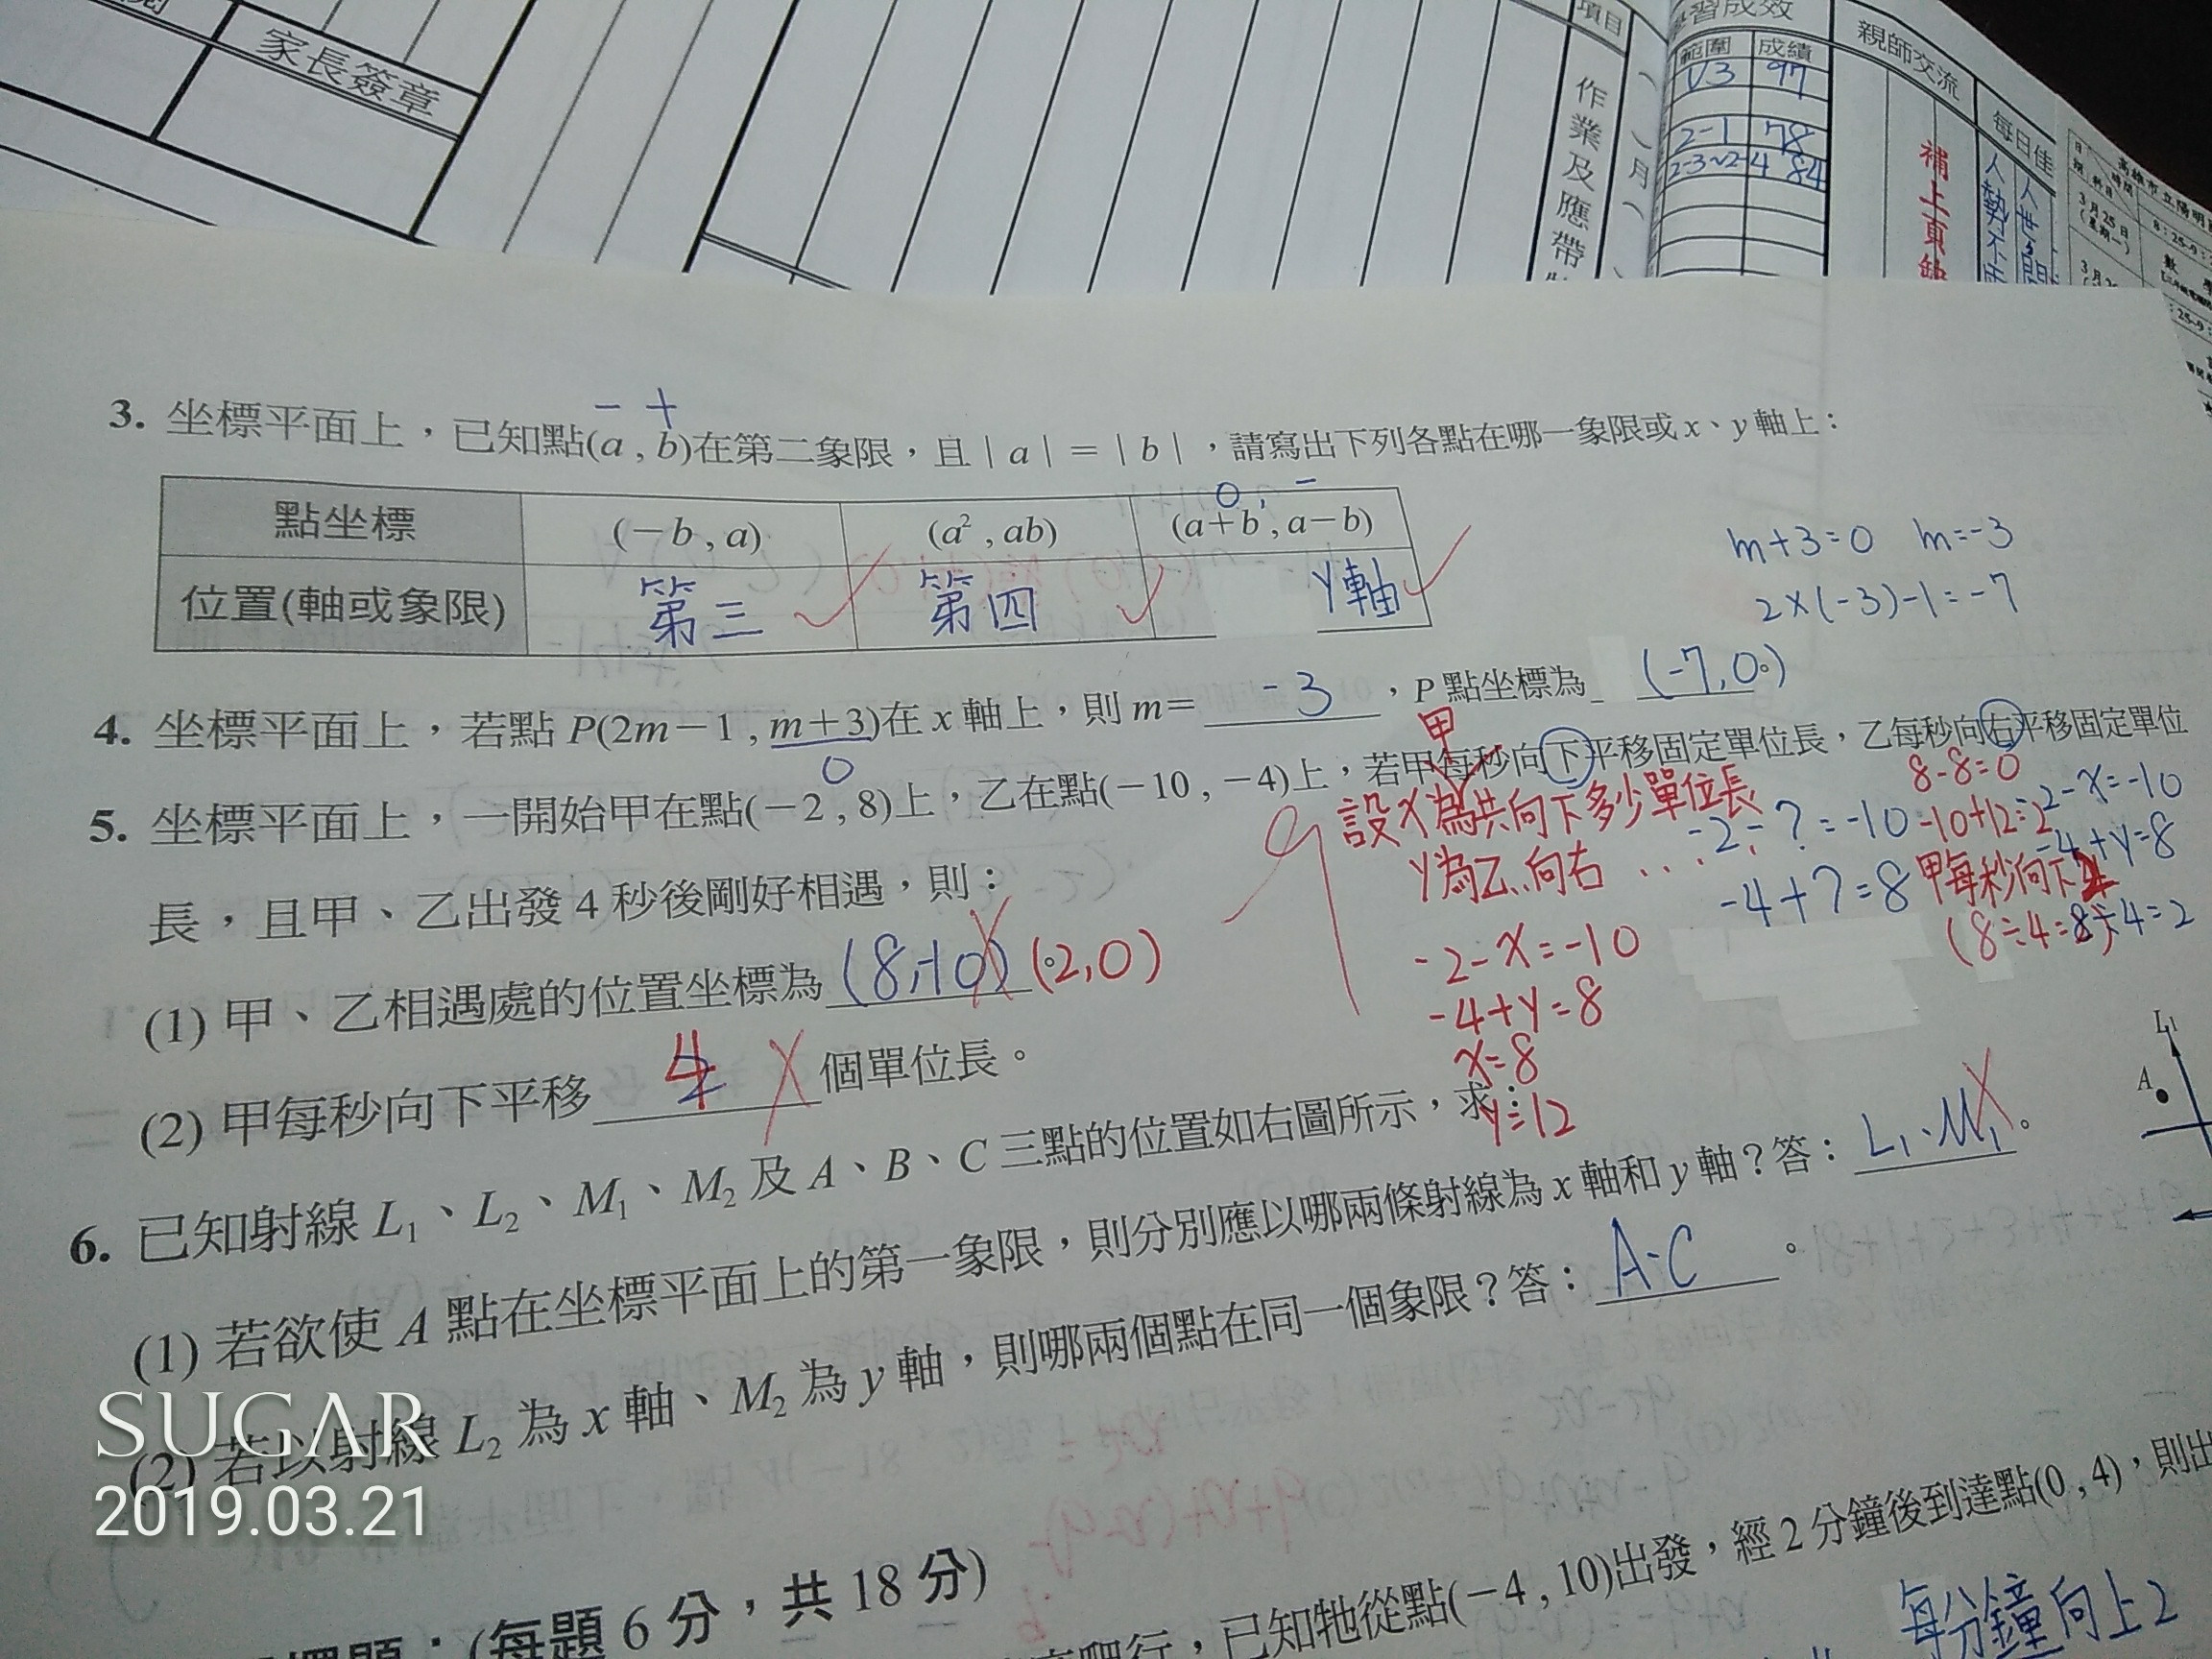 家長簽章
項目
作業及應帶
月
學習成效
範圍 成績
1/3 97
2-1 78
2-3~2-4 84
親師交流
補上頁
每日佳
人世
高雄市立陽明
3月25日
(星期一)
3. 坐標平面上，已知點(a , b)在第二象限，且 | a | = | b | ，請寫出下列各點在哪一象限或 x、y 軸上：
- +
點坐標 (-b , a) (a² , ab) (a+b , a-b)
0 , -
位置(軸或象限) 第三 第四 Y軸
m+3=0 m=-3
2×(-3)-1=-7
4. 坐標平面上，若點 P(2m-1 , m+3)在 x 軸上，則 m= -3 ，P 點坐標為 (-7,0) 。
0
5. 坐標平面上，一開始甲在點(-2 , 8)上，乙在點(-10 , -4)上，若甲每秒向下平移固定單位長，乙每秒向右平移固定單位
長，且甲、乙出發 4 秒後剛好相遇，則：
甲
設X為共向下多少單位長
Y為乙..向右...
-2-x=-10
-4+y=8
x=8
y=12
-2-?=-10
-4+?=8
8-8=0
-10+12=2
-2-x=-10
-4+y=8
甲每秒向下
(8÷4=
8÷4=2
(1) 甲、乙相遇處的位置坐標為 (8,-10) (-2,0) 。
(2) 甲每秒向下平移 4 個單位長。
6. 已知射線 L₁、L₂、M₁、M₂ 及 A、B、C 三點的位置如右圖所示，求：
(1) 若欲使 A 點在坐標平面上的第一象限，則分別應以哪兩條射線為 x 軸和 y 軸？答： L₁、M₁ 。
(2) 若以射線 L₂ 為 x 軸、M₂ 為 y 軸，則哪兩個點在同一個象限？答： A、C 。
L₁
A
(每題 6 分，共 18 分)
爬行，已知牠從點(-4 , 10)出發，經 2 分鐘後到達點(0 , 4)，則出
每分鐘向上2
SUGAR
2019.03.21